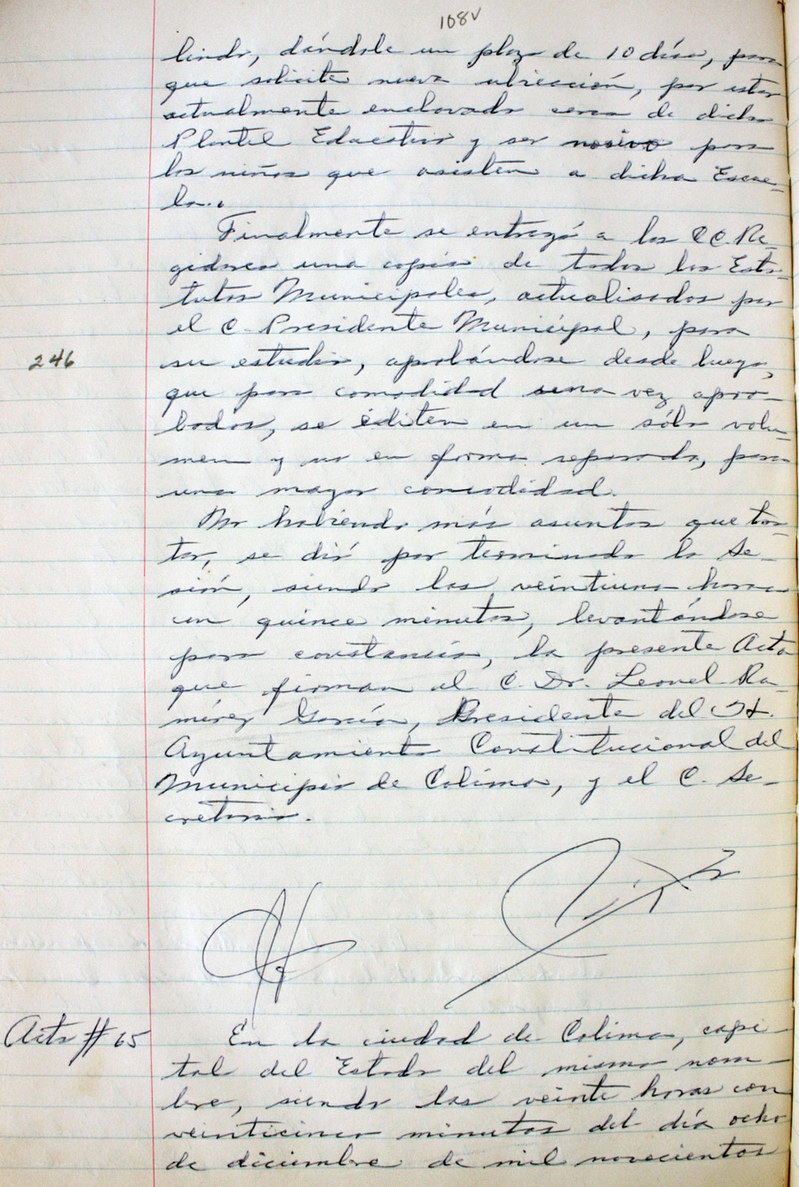 108v
lindo, dándole un plazo de 10 días, para
que solicite nueva ubicación, por estar
actualmente enclavado cerca de dicho
Plantel Educativo y ser nosivo para
los niños que asisten a dicha Escue-
la..
Finalmente se entregó a los CC. Re-
gidores una copia de todos los Esta-
tutos Municipales, actualisados por
el C. Presidente Municipal, para
246
su estudio, aprobándose desde luego,
que para comodidad una vez apro-
bados, se éditen en un sólo volu-
men y no en forma separada, para
una mayor comodidad.
No habiendo más asuntos que tra-
tar, se dió por terminada la Se-
sión, siendo las veintiuna horas
con quince minutos, levantándose
para constancia, la presente Acta
que firman el C. Dr. Leonel Ra-
mírez García, Presidente del H.
Ayuntamiento Constitucional del
Municipio de Colima, y el C. Se-
cretario.
Acta # 65
En la ciudad de Colima, capi-
tal del Estado del mismo nom-
bre, siendo las veinte horas con
veinticinco minutos del día ocho
de diciembre de mil novecientos